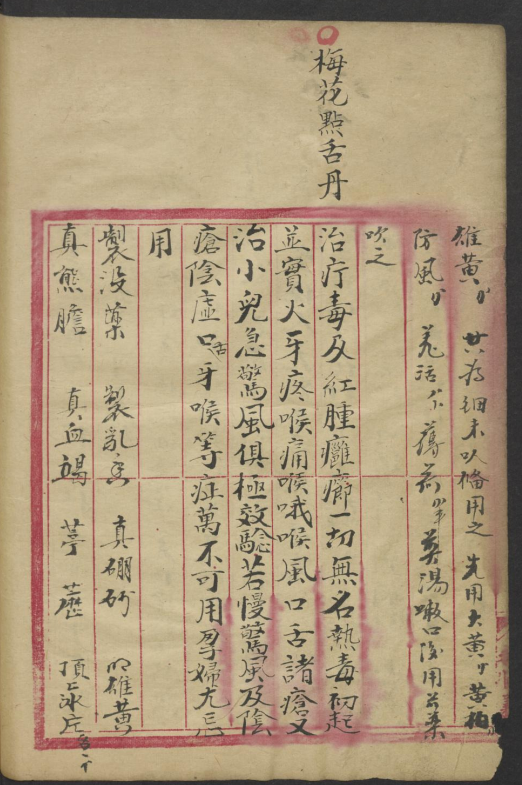 雄黃 共為細末以播用之 先用大黃 黃柏
防風 羌活 薄荷 煎湯嗽口後用前藥
吹之
梅花點舌丹
治疔毒及紅腫癰癤一切無名熱毒初起
並實火牙疼喉痛喉哦喉風口舌諸瘡又
治小兒急驚風俱極效驗若慢驚風及陰
瘡陰虛口舌牙喉等症萬不可用孕婦尤忌
用
製沒藥 製乳香 真硼砂 明雄黃
真熊膽 真血竭 葶藶 頂上冰片